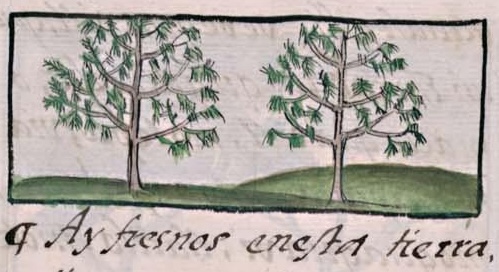 ¶ Ay fresnos enesta tierra,